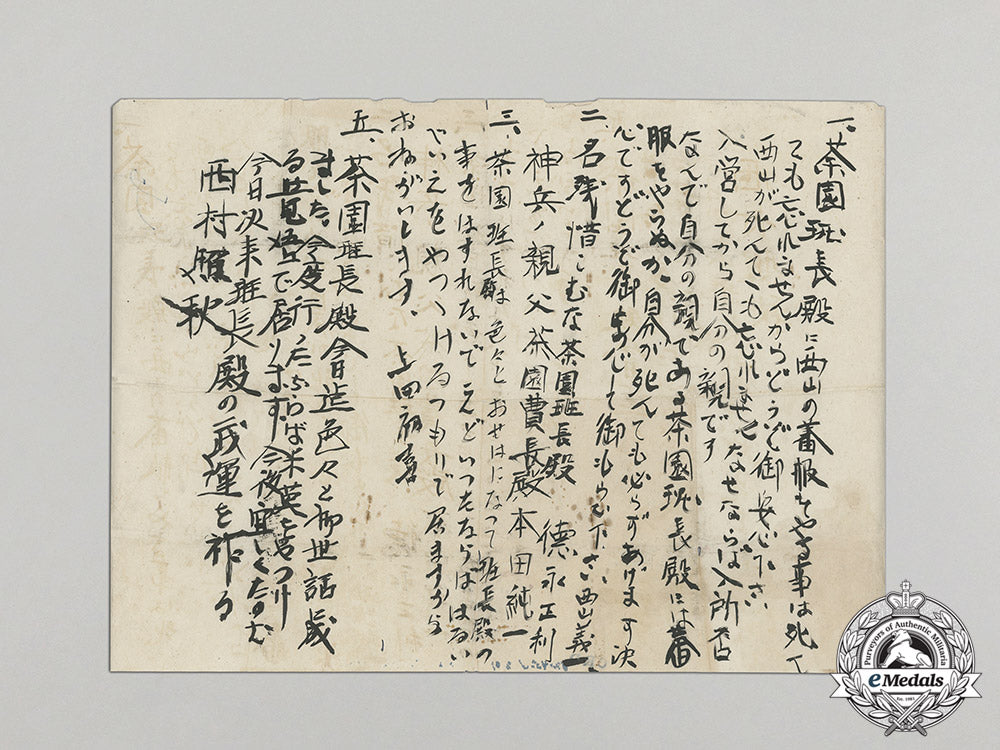 一、茶園班長殿に西山の蕃服をやる事は死て
ても忘れませんからどうぞ御安心下さい
西山が死んでても忘れませんなせならば入所否
入営してから自分の親です
なんで自分の親である茶園班長殿には蕃
服をやらぬか自分が死んても必らずあげます決
心ですどうぞ御あんじして御もらひ下さい西山義一
二、名残惜しむな茶園班長殿 德永正利
神兵ノ親父茶園費長殿本田純一
三、茶園班長殿は色々とおせはになつて班長殿の
事をはすれないでえどいつたならばはるい
でいえをやつつけるつもりで居ますから
おねがいします、上田
五、茶園班長殿今日迄色々と御世話成
ました。今度行ったならば米英をやつけ
る覚悟で居ります今後宜しくたのむ
今日次来班長殿の武運を祈る
西村 秋
Purveyors of Authentic Militaria
eMedals
Est. 1985